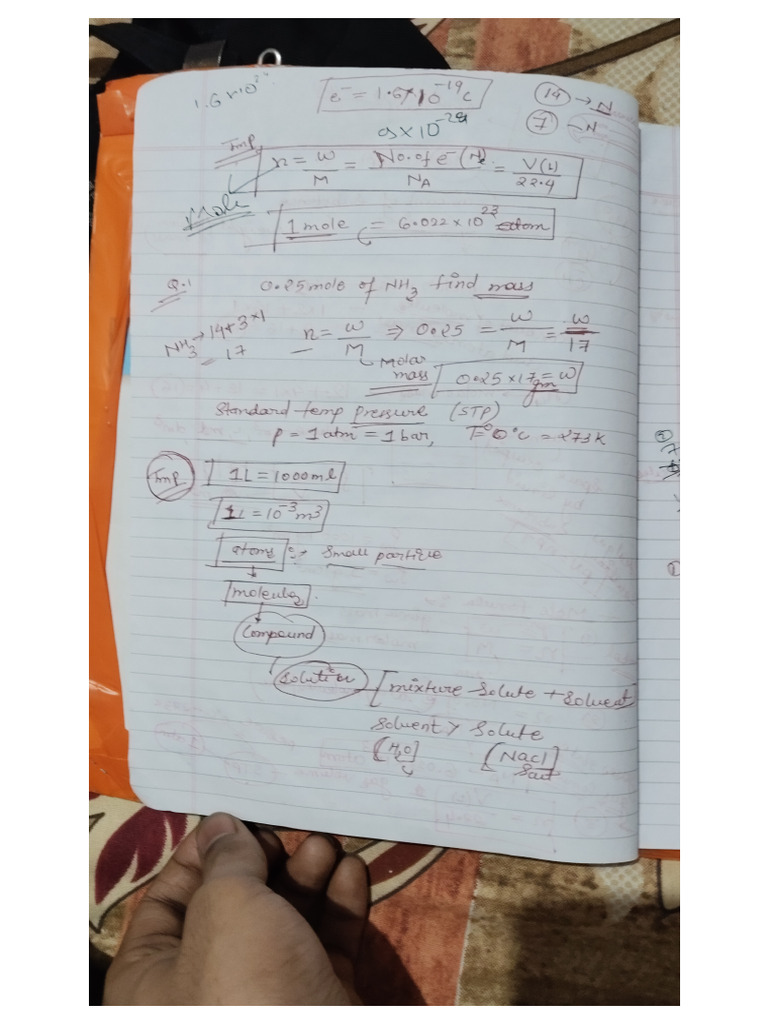 1.6 x 10
e⁻ = 1.6 x 10⁻¹⁹ c
14 → N
7 → N
9 x 10⁻²⁸
Imp
n = w/M = No. of e⁻ (Ne)/NA = V(L)/22.4
Mole
1 mole = 6.022 x 10²³ atom
Q.1 0.25 mole of NH₃ find mass
NH₃ → 14 + 3 x 1
17
n = w/M ⇒ 0.25 = w/M = w/17
Molar mass
0.25 x 17 = w
gm
Standard temp pressure (STP)
p = 1 atm = 1 bar, T = 0°c = 273 K
Imp
1L = 1000 ml
1L = 10⁻³ m³
atoms → small particle
Compound
Solution [mixture solute + solvent
solvent > solute
[H₂O] [NaCl]
salt